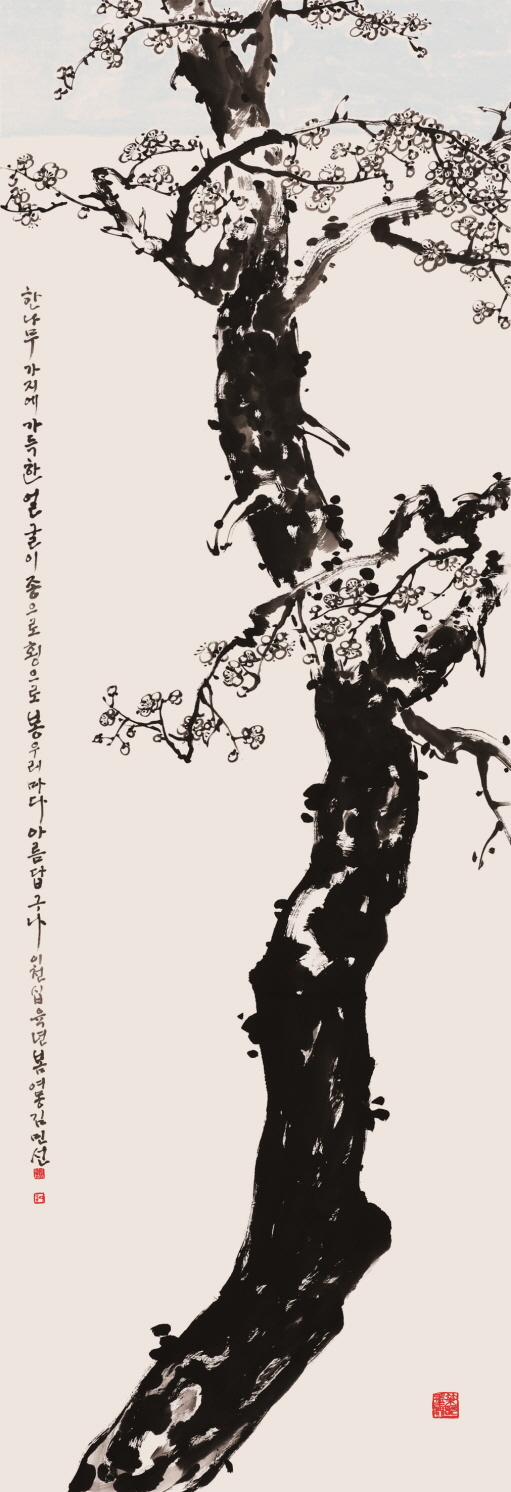 한나무 가지에 가득한 얼굴이 종으로 횡으로 봉우리마다 아름답구나 이천십육년 봄 여봉 김민선